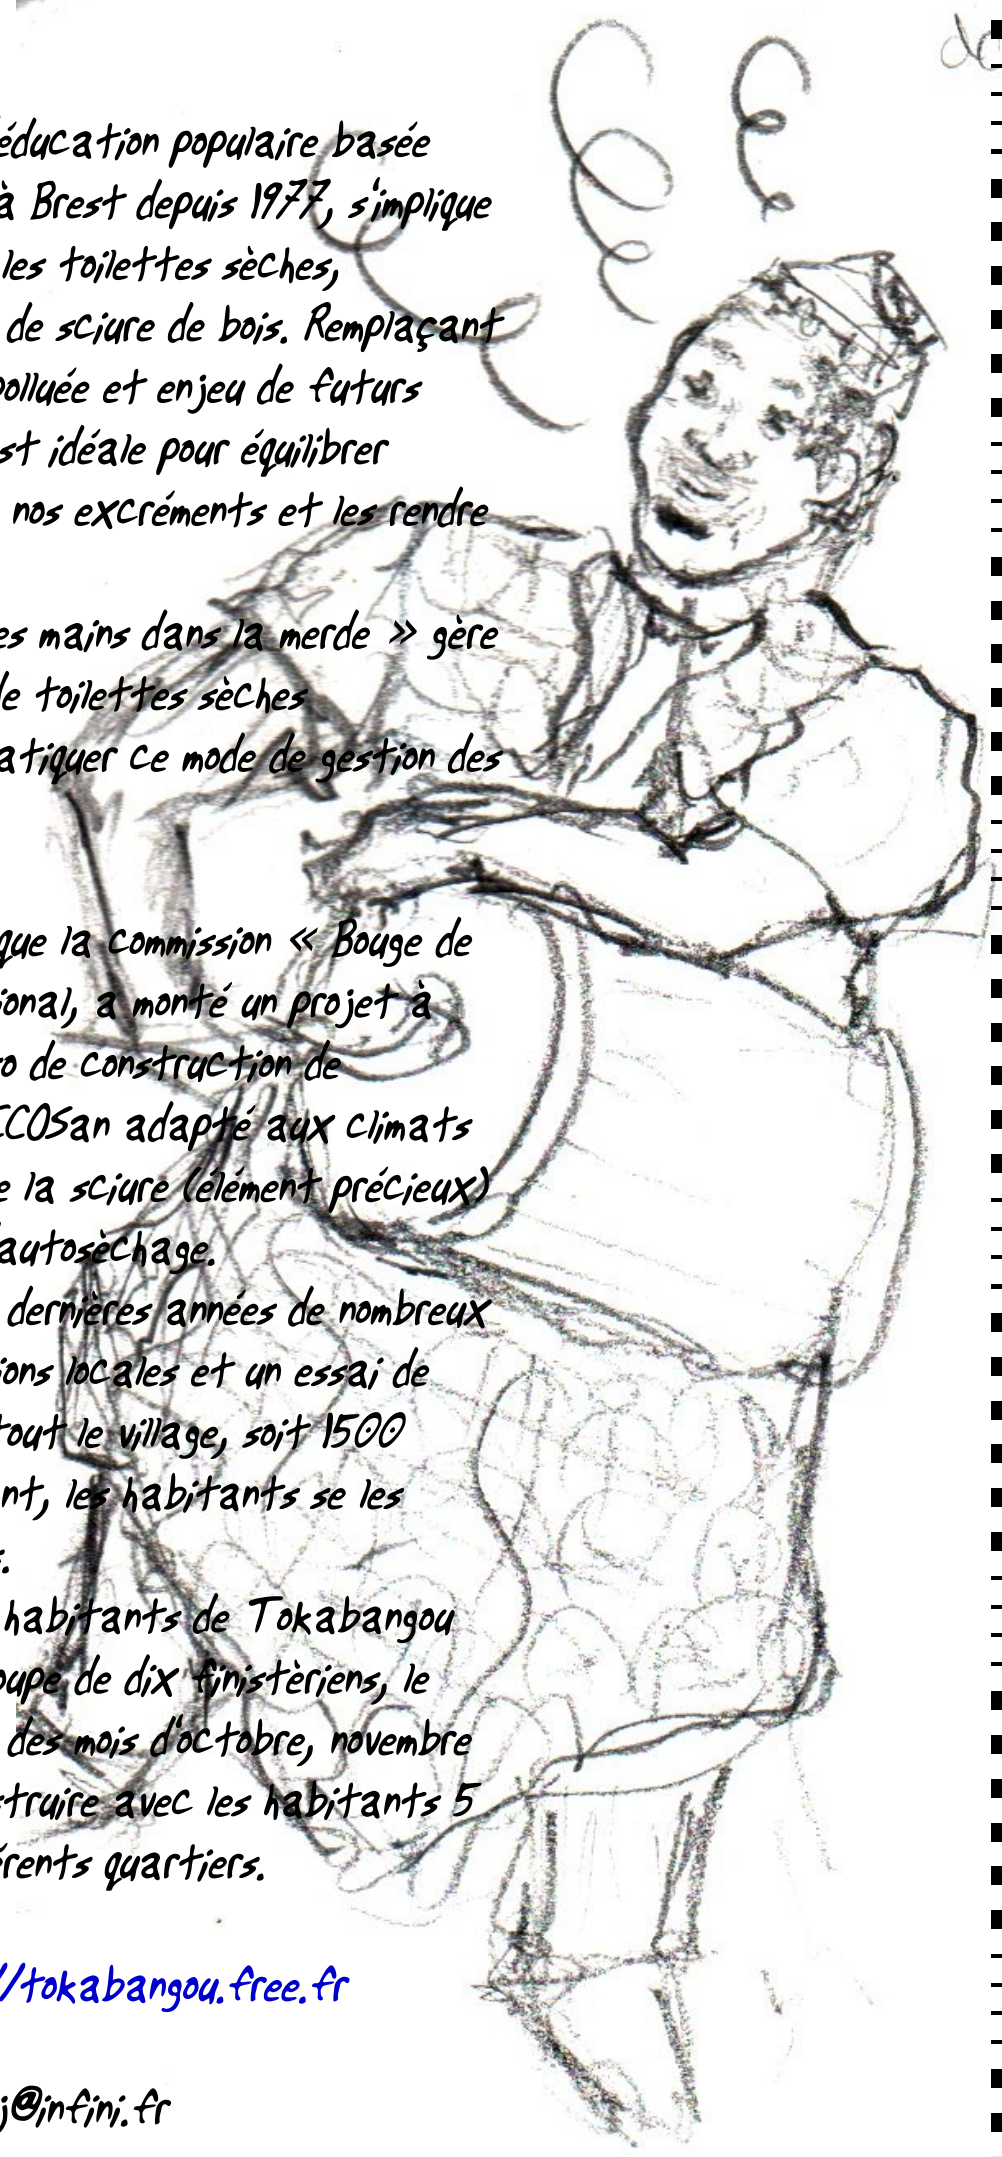 dc
éducation populaire basée
à Brest depuis 1977, s'implique
les toilettes sèches,
de sciure de bois. Remplaçant
polluée et enjeu de futurs
st idéale pour équilibrer
nos excréments et les rendre
es mains dans la merde » gère
de toilettes sèches
atiquer ce mode de gestion des
que la commission « Bouge de
ional, a monté un projet à
o de construction de
ECOSan adapté aux climats
e la sciure (élément précieux)
'autosèchage.
dernières années de nombreux
ions locales et un essai de
tout le village, soit 1500
nt, les habitants se les
s.
habitants de Tokabangou
oupe de dix finistèriens, le
des mois d'octobre, novembre
struire avec les habitants 5
érents quartiers.
//tokabangou.free.fr
j@infini.fr